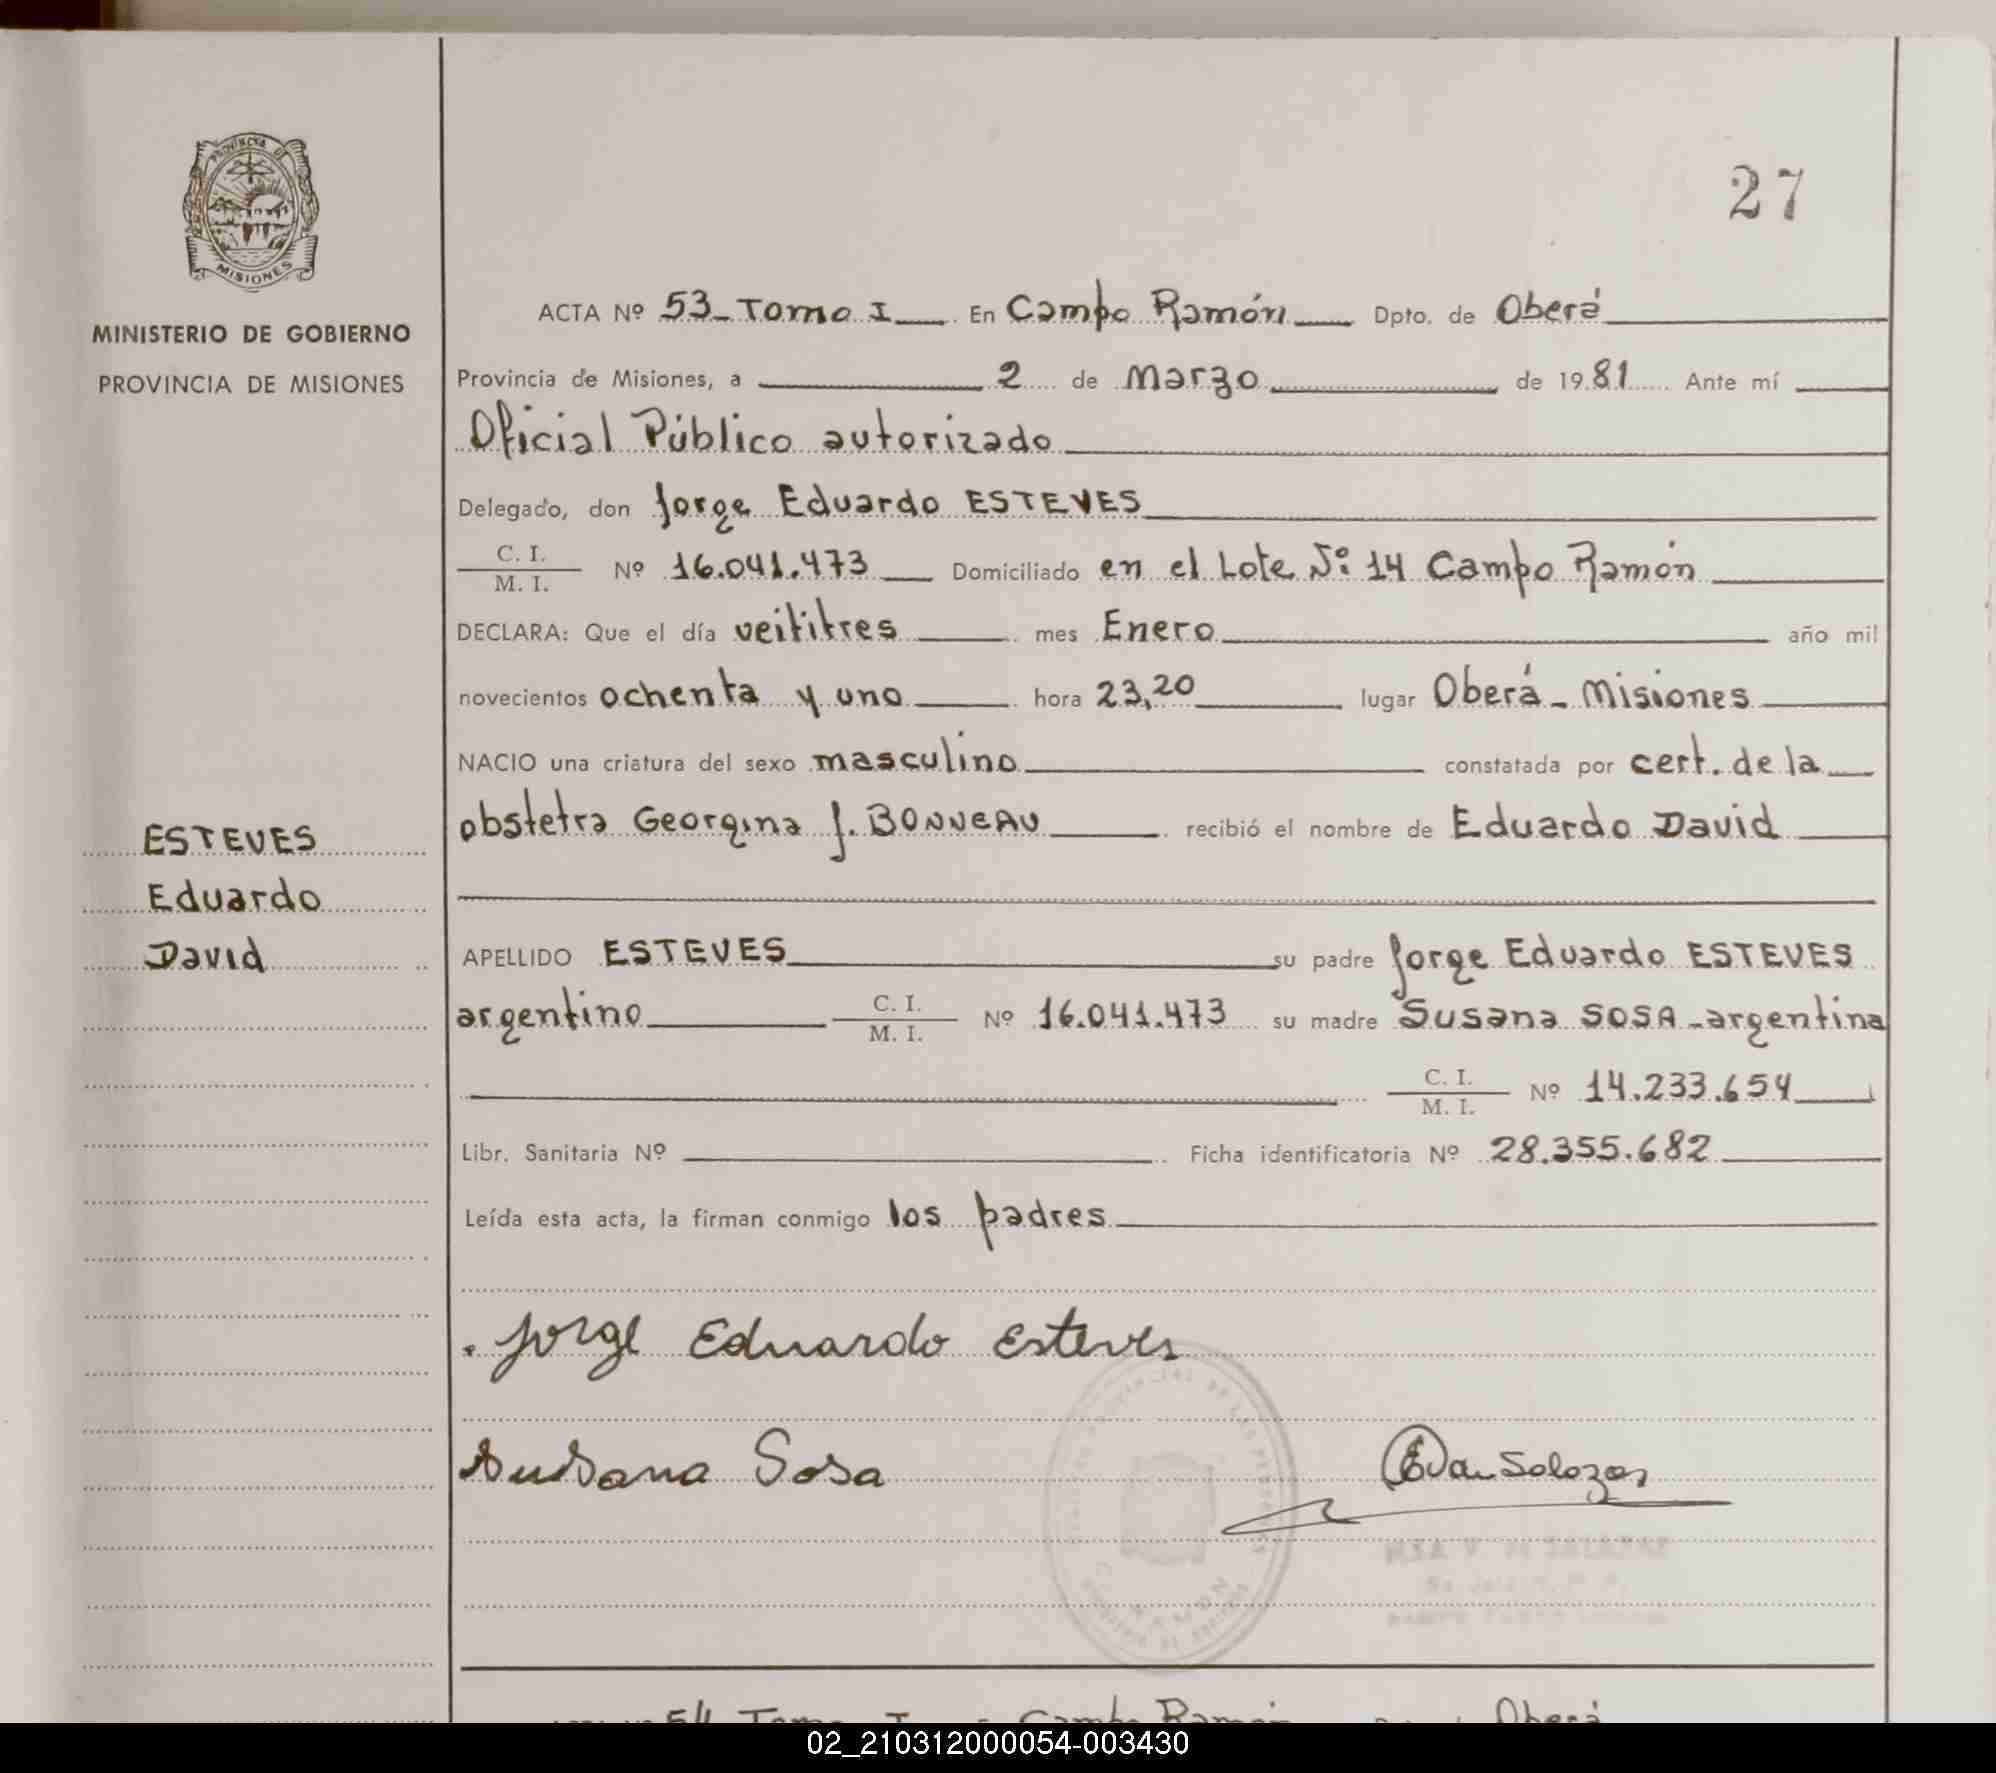 27
PROVINCIA DE
MISIONES
MINISTERIO DE GOBIERNO
PROVINCIA DE MISIONES
ESTEVES
Eduardo
David
ACTA Nº 53_ Tomo I En Campo Ramón Dpto. de Oberá
Provincia de Misiones, a 2 de Marzo de 1981 Ante mí
Oficial Público autorizado
Delegado, don Jorge Eduardo ESTEVES
C. I.
M. I. Nº 16.041.473 Domiciliado en el Lote Nº 14 Campo Ramón
DECLARA: Que el día veititres mes Enero año mil
novecientos ochenta y uno hora 23,20 lugar Oberá - Misiones
NACIO una criatura del sexo masculino constatada por cert. de la
obstetra Georgina J. BONNEAU recibió el nombre de Eduardo David
APELLIDO ESTEVES su padre Jorge Eduardo ESTEVES
argentino C. I.
M. I. Nº 16.041.473 su madre Susana SOSA - argentina
C. I.
M. I. Nº 14.233.654
Libr. Sanitaria Nº Ficha identificatoria Nº 28.355.682
Leída esta acta, la firman conmigo los padres
Jorge Eduardo Esteves
Susana Sosa
Salazar
RAMON
54 Tomo I Campo Ramón Oberá
02_210312000054-003430